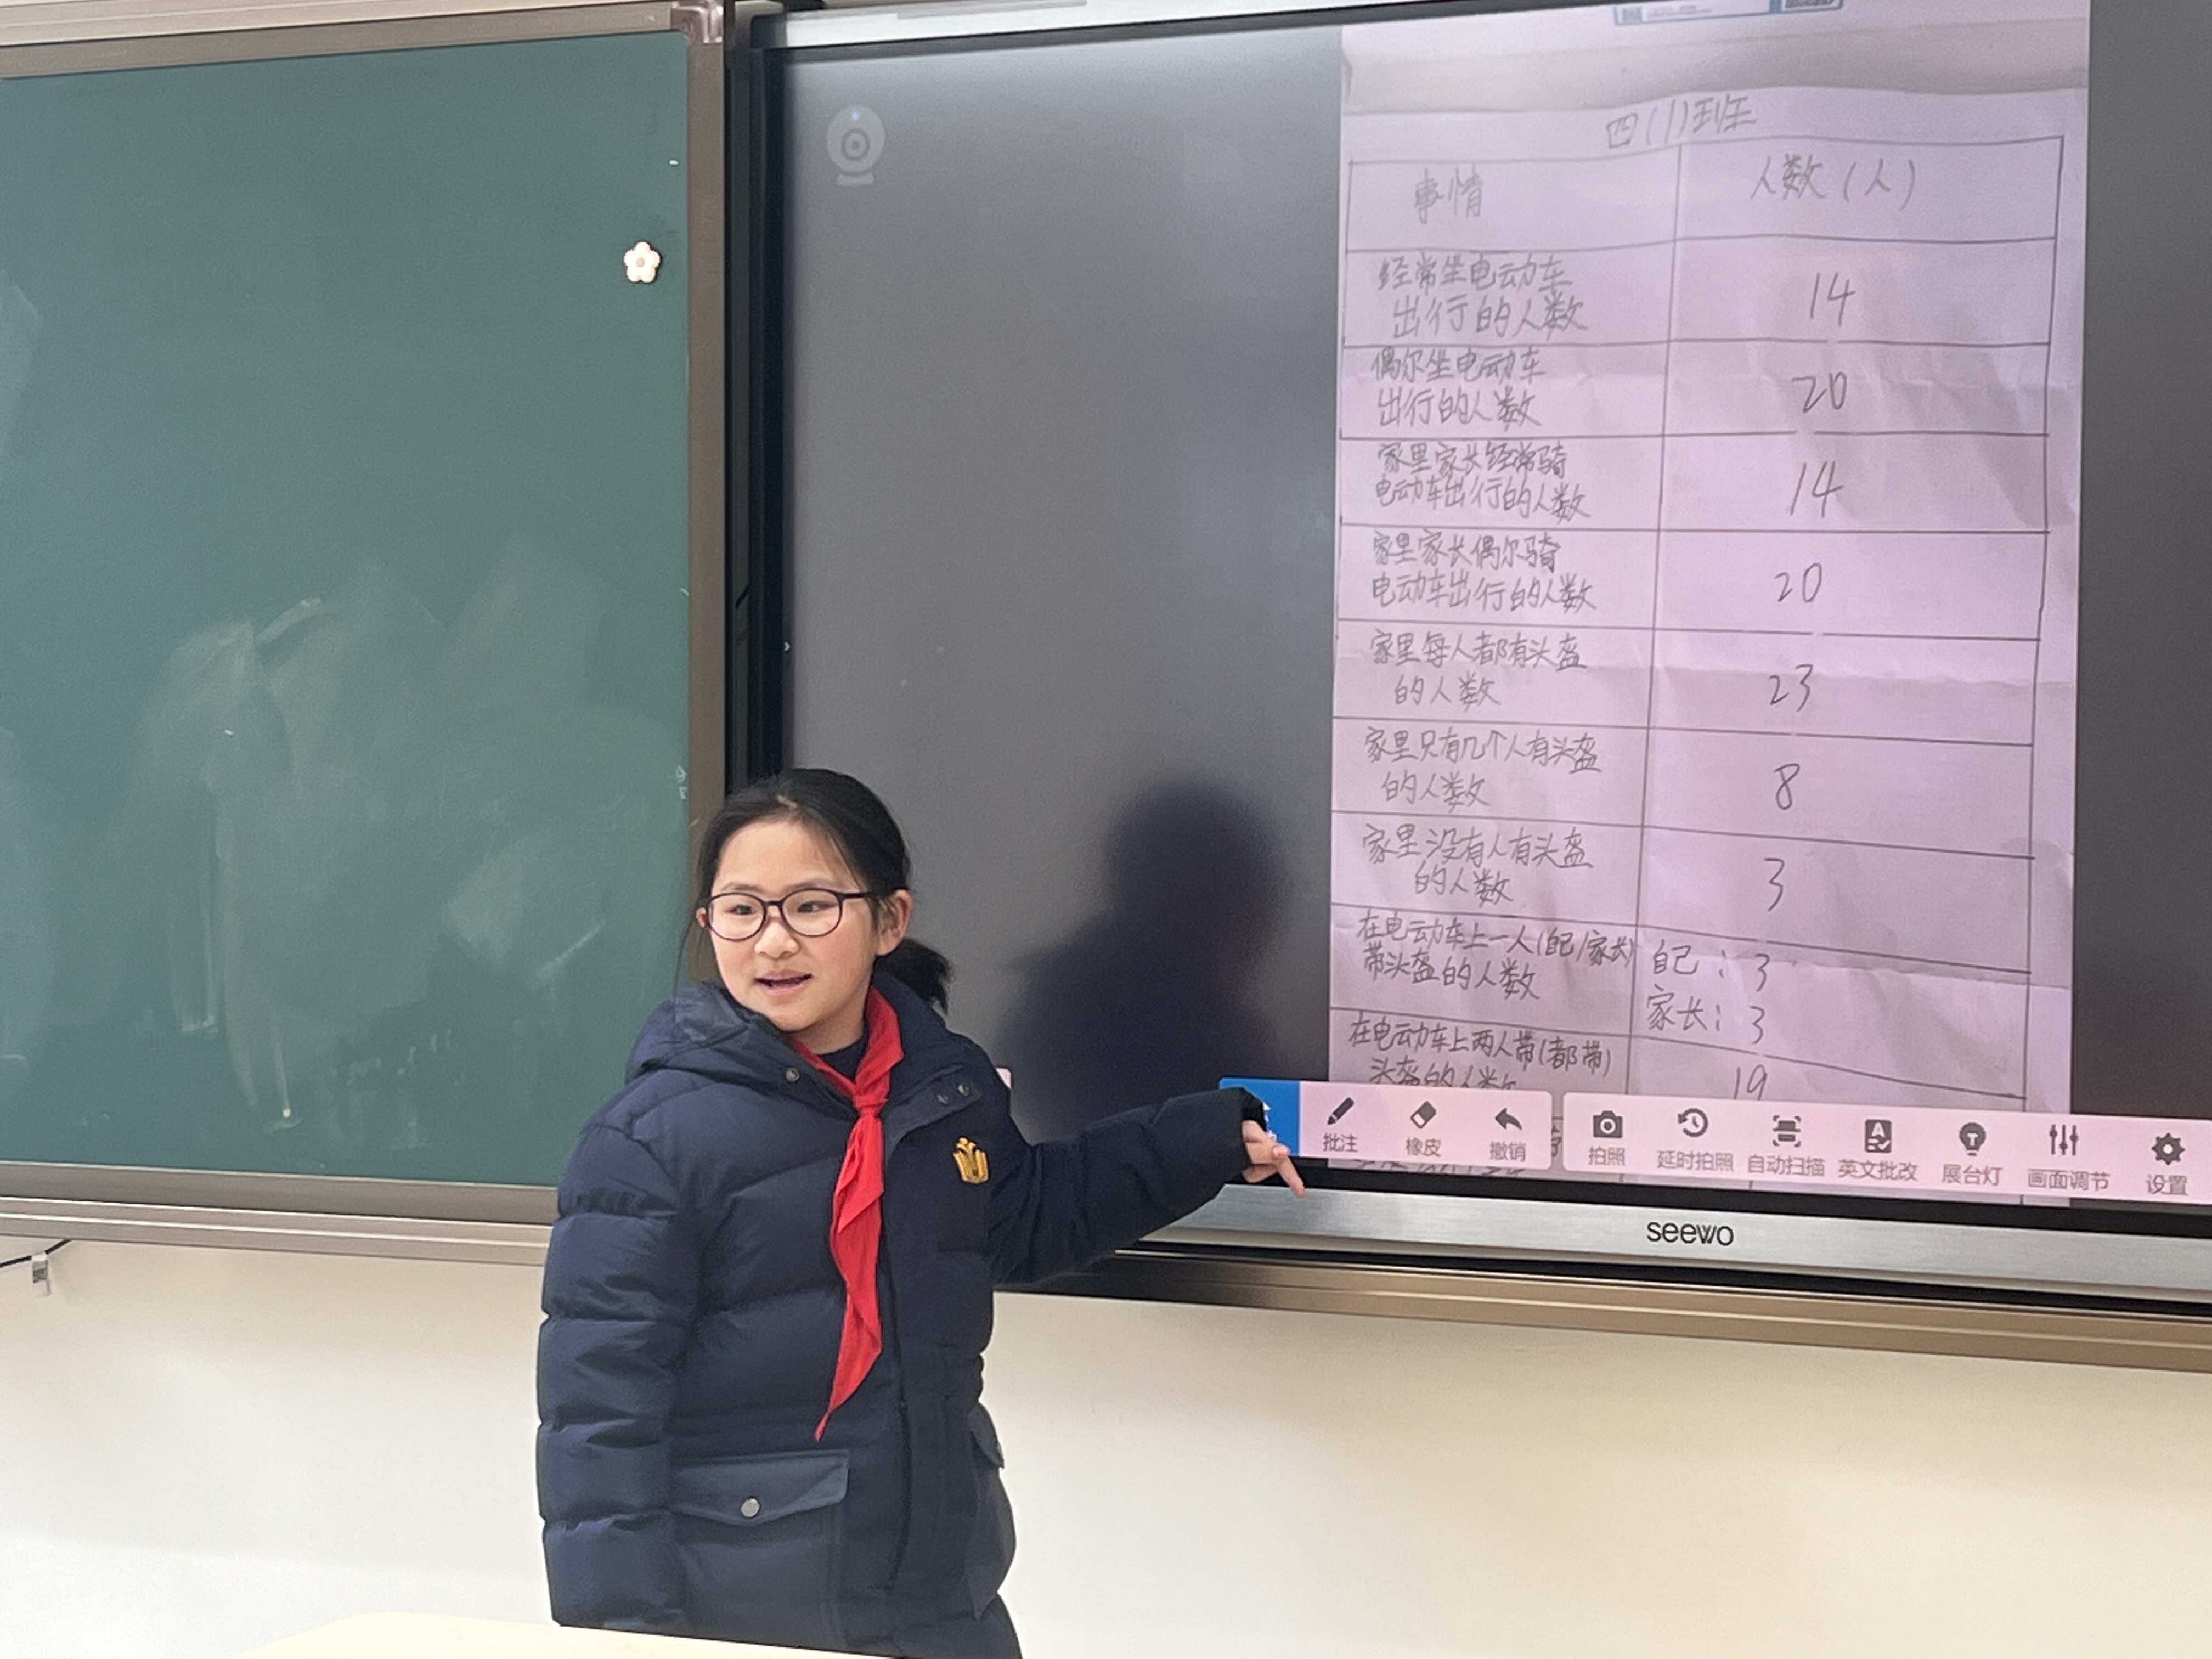 四(1)班
事情
人数(人)
经常坐电动车
出行的人数
14
偶尔坐电动车
出行的人数
20
家里家长经常骑
电动车出行的人数
14
家里家长偶尔骑
电动车出行的人数
20
家里每人都有头盔
的人数
23
家里只有几个人有头盔
的人数
8
家里没有人有头盔
的人数
3
在电动车上一人(自己/家长)
带头盔的人数
自己:3
家长:3
在电动车上两人带(都带)
头盔的人数
19
批注
橡皮
撤销
拍照
延时拍照
自动扫描
英文批改
展台灯
画面调节
设置
seewo